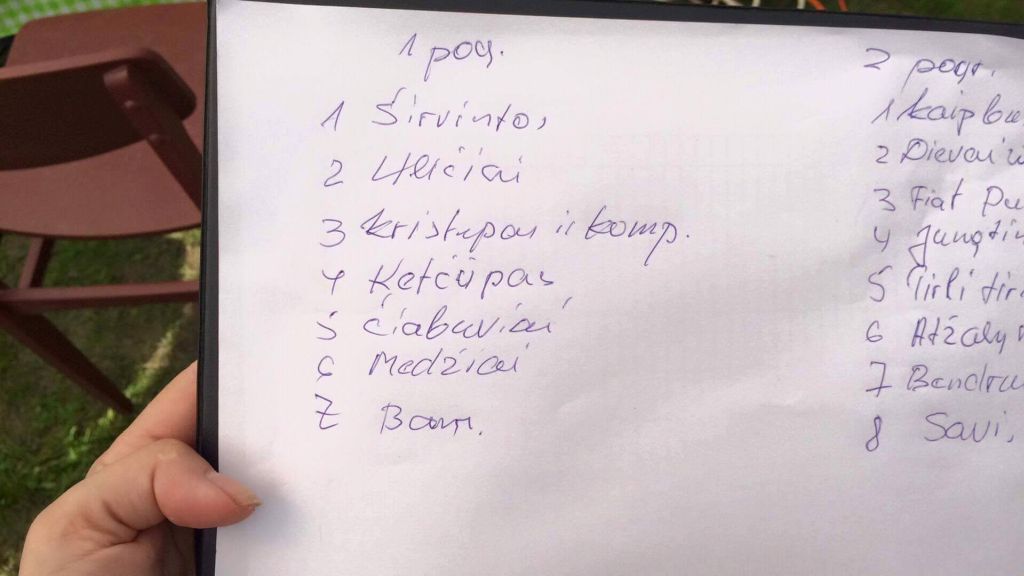 1 pog.
1 Širvintos
2
3 Kristupas ir komp.
4 Ketčiupas
5 Čiabuviai
6 Medžiai
7 Bam.
2 pogr.
1 Kaip bu
2 Dievai
3 Fiat Pu
4 Jungtin
5 Tirli tir
6 Atžaly
7 Bendra
8 Savi.